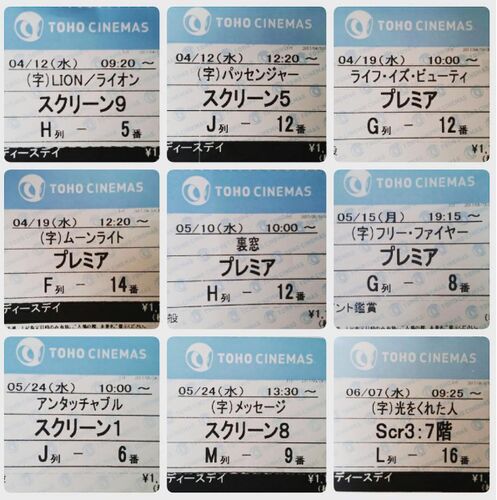 TOHO CINEMAS
04/12(水) 09:20 ～
(字)LION／ライオン
スクリーン9
H列 － 5番
ディースデイ ¥1,
TOHO CINEMAS
04/12(水) 12:20 ～
(字)パッセンジャー
スクリーン5
J列 － 12番
ディースデイ ¥1,
TOHO CINEMAS
04/19(水) 10:00 ～
ライフ・イズ・ビューティ
プレミア
G列 － 12番
ディースデイ ¥1,
TOHO CINEMAS
04/19(水) 12:20 ～
(字)ムーンライト
プレミア
F列 － 14番
ディースデイ ¥1,
TOHO CINEMAS
05/10(水) 10:00 ～
裏窓
プレミア
H列 － 12番
般 ¥1,
TOHO CINEMAS
05/15(月) 19:15 ～
(字)フリー・ファイヤー
プレミア
G列 － 8番
ント鑑賞
TOHO CINEMAS
05/24(水) 10:00 ～
アンタッチャブル
スクリーン1
J列 － 6番
¥1
TOHO CINEMAS
05/24(水) 13:30 ～
(字)メッセージ
スクリーン8
M列 － 9番
¥1,
TOHO CINEMAS
06/07(水) 09:25 ～
(字)光をくれた人
Scr3:7階
L列 － 16番
¥1,